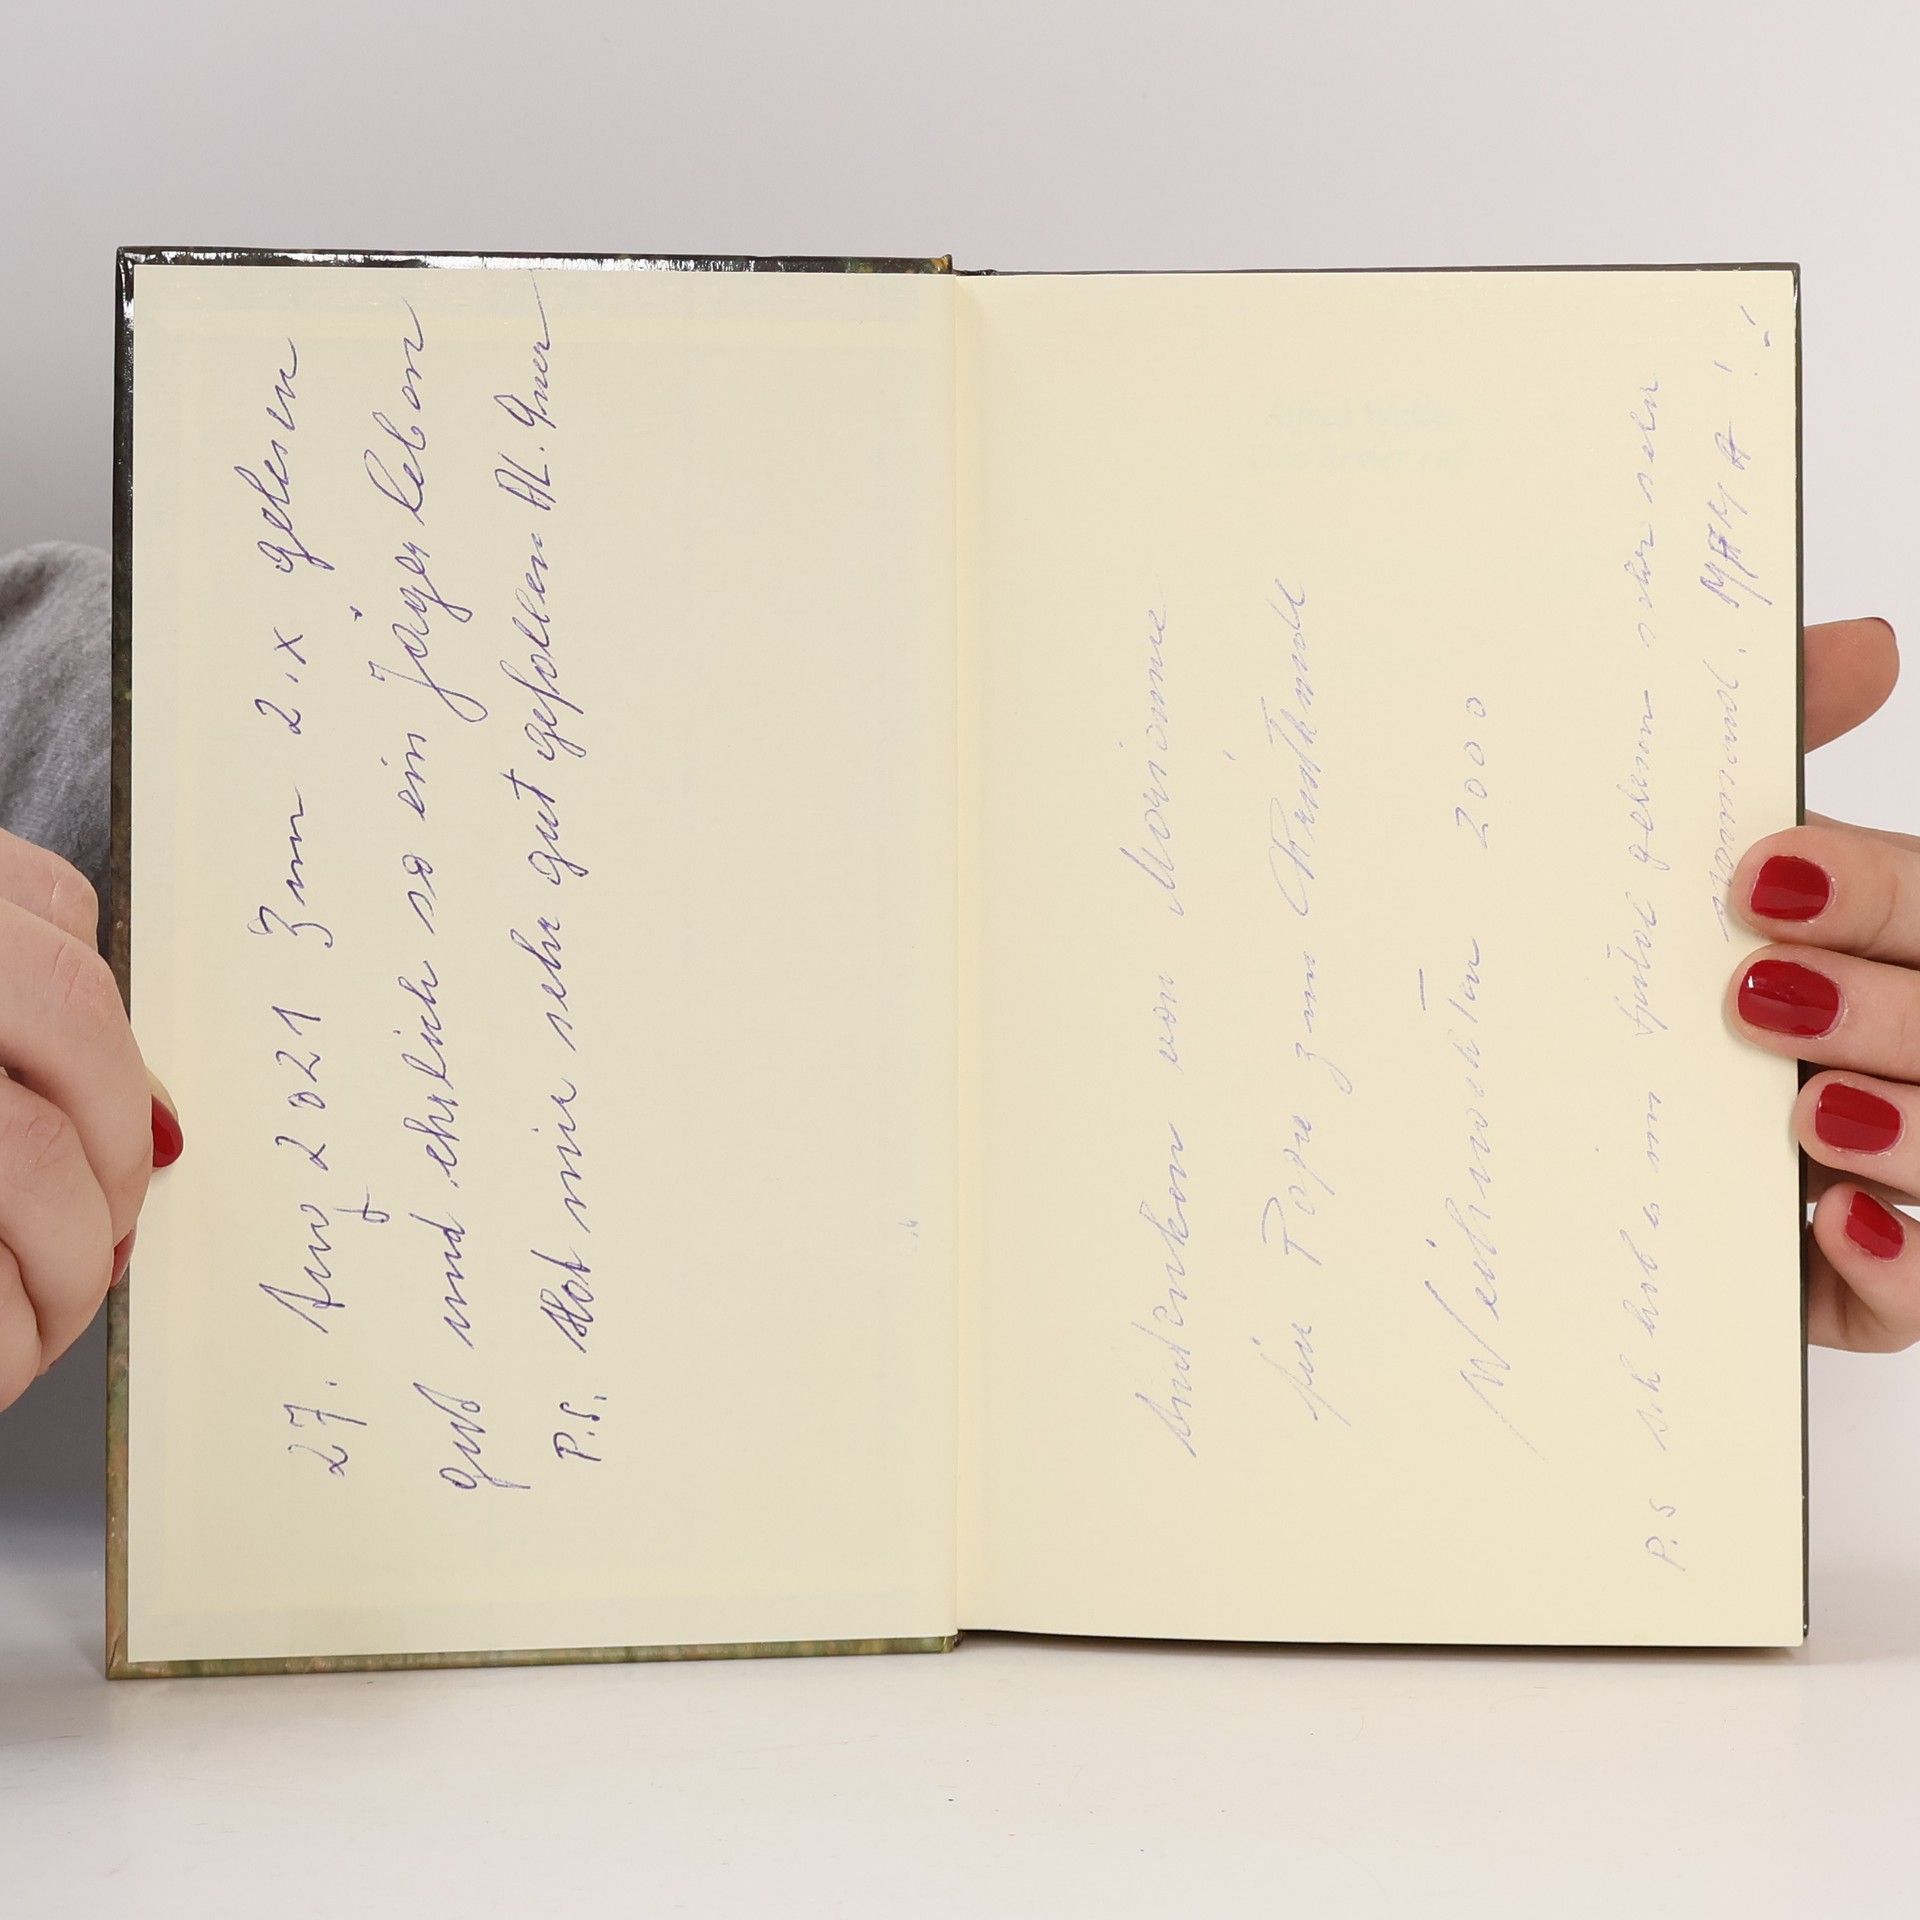 27. Aug 2021 Zum 2.x gelesen
gut und ehrlich so ein Jägerleben
P.S. Hat mir sehr gut gefallen
Andenken von Marianne
für Papa zum Christkindl
Weihnachten 2000
P.S ich hab es im gelesen sehr sehr
spannend. MAMA!